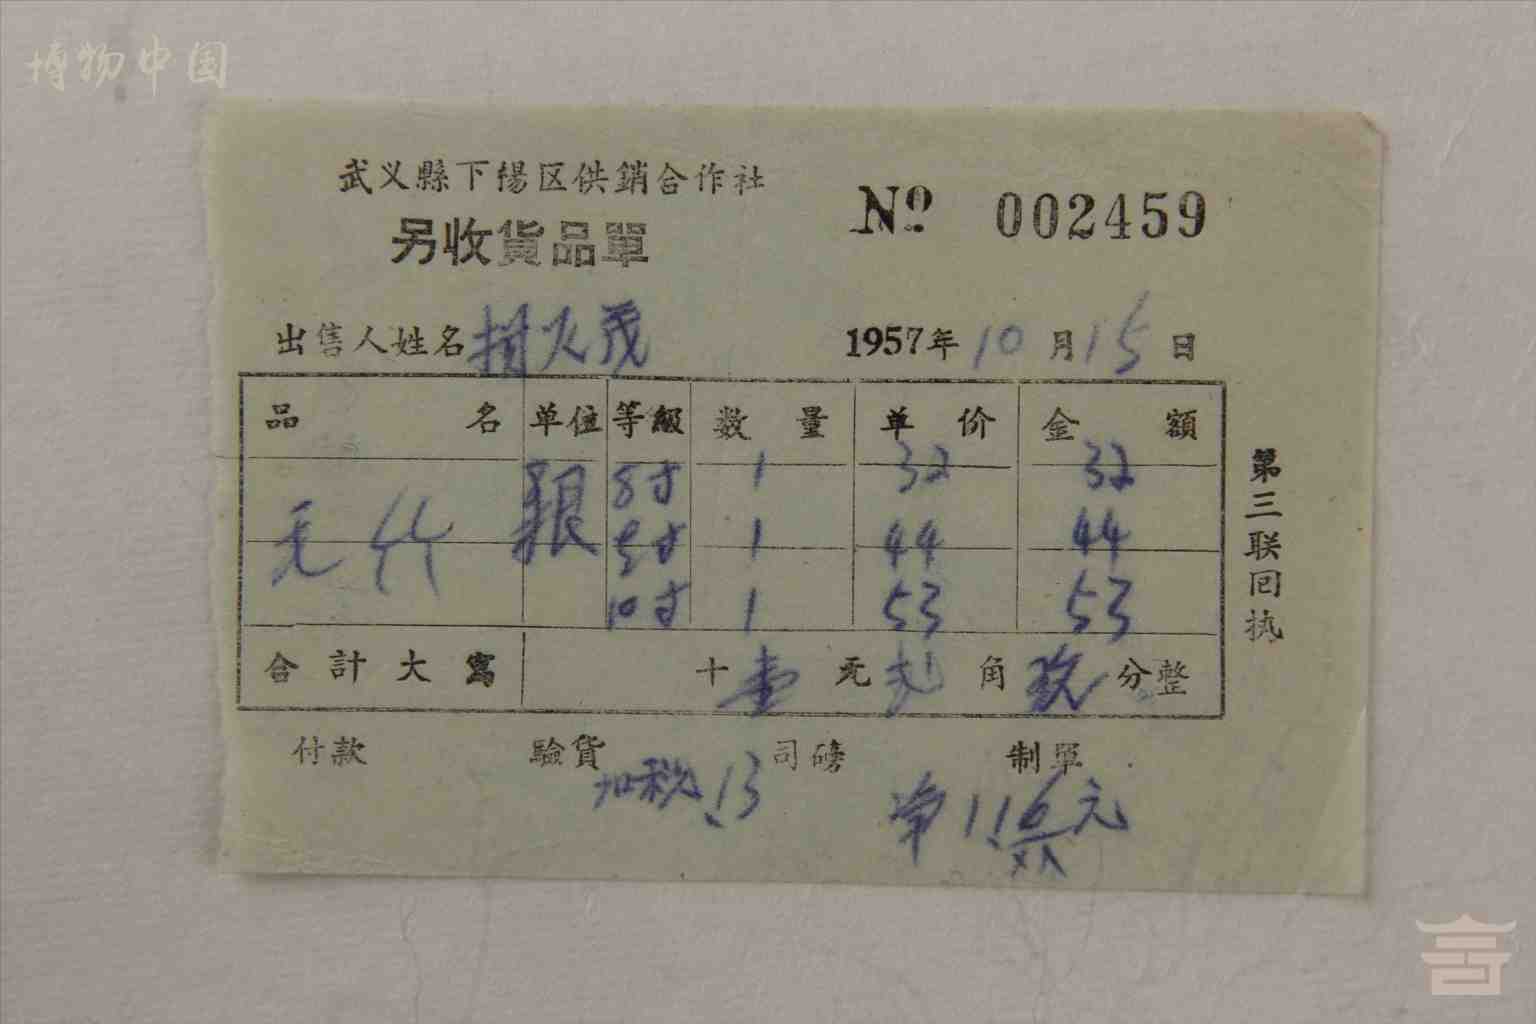 博物中国
武义縣下楊区供銷合作社
另收貨品單
№ 002459
出售人姓名 火茂 1957年10月15日
品名 单位 等級 数量 单价 金額
毛竹 根 8寸 1 32 32
9寸 1 44 44
10寸 1 53 53
合計大寫 十壹元弍角玖分整
付款 驗貨 司磅 制單
扣税.13 净1.16元
第三联回执